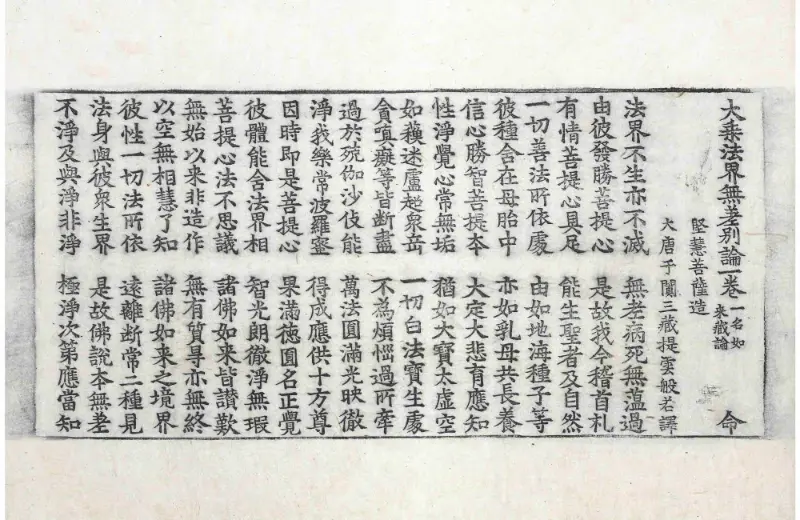 大乘法界無差別論一卷 一名如来藏論 命
堅慧菩薩造
大唐于闐三藏提雲般若譯
法界不生亦不滅 無老病死無蘊過
由彼發勝菩提心 是故我今稽首礼
有情菩提心具足 能生聖者及自然
一切善法所依處 由如地海種子等
彼種含在母胎中 亦如乳母共長養
信心勝智菩提本 大定大悲育應知
性淨覺心常無垢 猶如大寶太虛空
如蘓迷盧超衆岳 一切白法寶生處
貪嗔癡等皆斷盡 不為煩惱過所牽
過於殑伽沙伎能 萬法圓滿光映徹
淨我樂常波羅蜜 得成應供十方尊
因時即是菩提心 果滿德圓名正覺
彼體能含法界相 智光朗徹淨無瑕
菩提心法不思議 諸佛如来皆讃歎
無始以来非造作 無有質㝵亦無終
以空無相慧了知 諸佛如来之境界
彼性一切法所依 遠離斷常二種見
法身與彼衆生界 是故佛說本無差
不淨及與淨非淨 極淨次第應當知